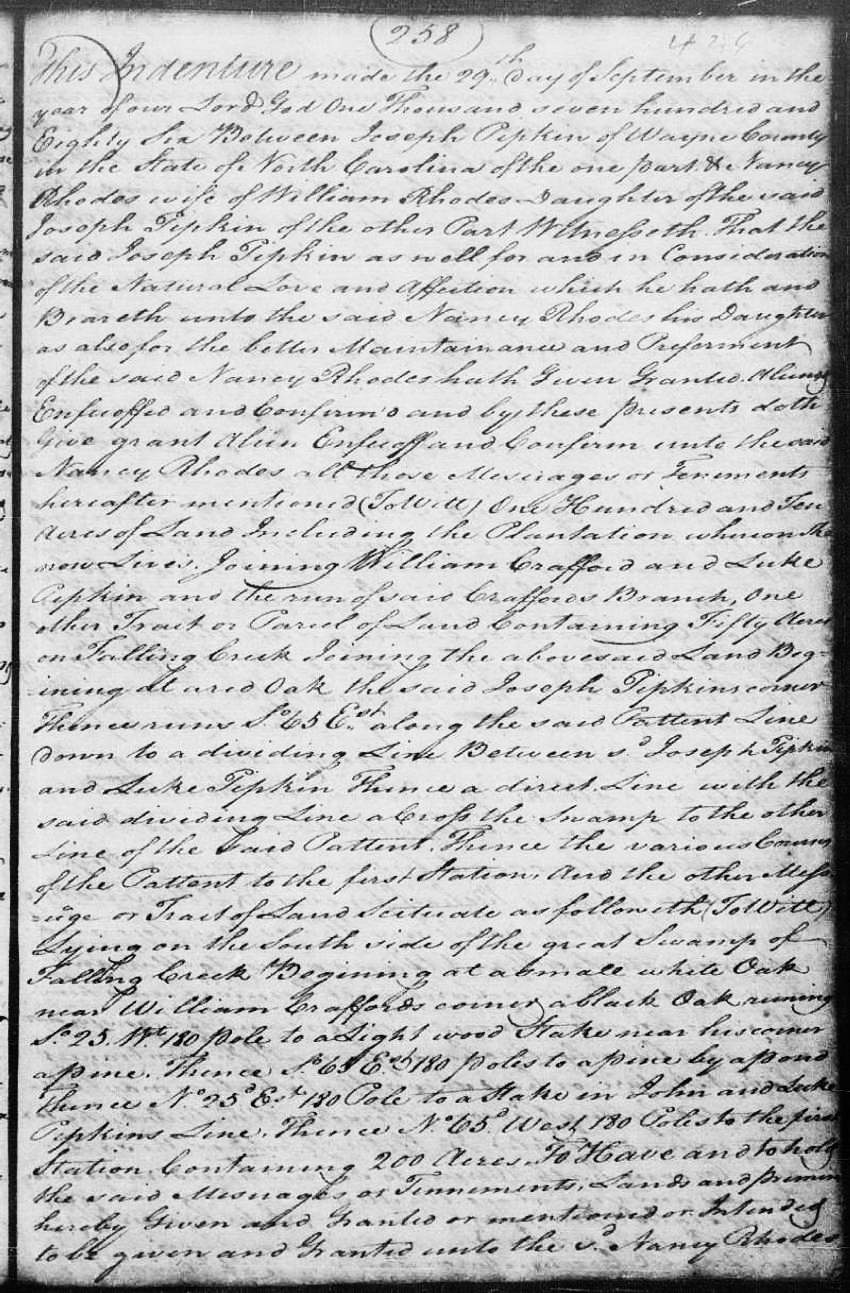 258
This Indenture made the 29th day of September in the
year of our Lord God One Thousand seven hundred and
Eighty Six Between Joseph Pipkin of Wayne County
in the State of North Carolina of the one part & Nancy
Rhodes wife of William Rhodes Daughter of the said
Joseph Pipkin of the other Part Witnesseth. That the
said Joseph Pipkin as well for and in Consideration
of the Natural Love and Affection which he hath and
Beareth unto the said Nancy Rhodes his Daughter
as also for the better Maintainance and Preferment
of the said Nancy Rhodes hath Given Granted Aliened
Enfeoffed and Confirm'd and by these presents doth
Give grant Alien Enfeoff and Confirm unto the said
Nancy Rhodes all those Messuages or Tenements
hereafter mentioned (To Witt) One Hundred and Ten
Acres of Land Including the Plantation whereon She
now Lives. Joining William Crafford and Luke
Pipkin and the run of said Craffords Branch, One
other Tract or Parcel of Land Containing Fifty Acres
on Falling Creek Joining the abovesaid Land Beg=
ining at a red Oak the said Joseph Pipkins corner
Thence runs So. 65 Est. along the said Pattent Line
down to a dividing Line Between sd. Joseph Pipkin
and Luke Pipkin Thence a direct Line with the
said dividing Line a Cross the Swamp to the other
Line of the Said Pattent. Thence the various Courses
of the Pattent to the first Station. And the other Mess
=uage or Tract of Land Scituate as followeth (To Witt)
Lying on the South side of the great Swamp of
Falling Creek Begining at a small white Oak
near William Craffords corner a black Oak runing
So 25. Wt. 180 pole to a Light wood Stake near his corner
a pine. Thence So 65 Est. 180 poles to a pine by a pond
Thence No. 25d Est. 180 Pole to a Stake in John and Luke
Pipkins Line. Thence No. 65d West 180 Poles to the first
Station. Containing 200 Acres. To Have and to hold
the said Messuages or Tennements, Lands and premises
hereby Given and Granted or mentioned or Intended
to be given and Granted unto the sd. Nancy Rhodes